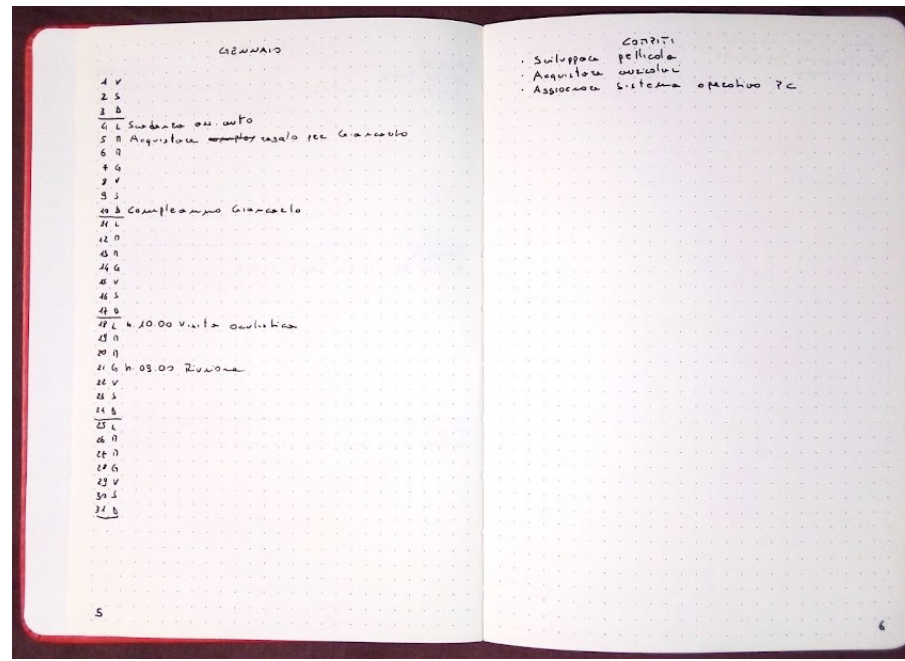 GENNAIO
1 V
2 S
3 D
4 L Scadenza ass. auto
5 M Acquistare regalo per Giancarlo
6 M
7 G
8 V
9 S
10 D Compleanno Giancarlo
11 L
12 M
13 M
14 G
15 V
16 S
17 D
18 L h. 10.00 Visita oculistica
19 M
20 M
21 G h. 09.00 Riunione
22 V
23 S
24 D
25 L
26 M
27 M
28 G
29 V
30 S
31 D
5
COMPITI
· Sviluppare pellicola
· Acquistare auricolari
· Aggiornare sistema operativo PC
6